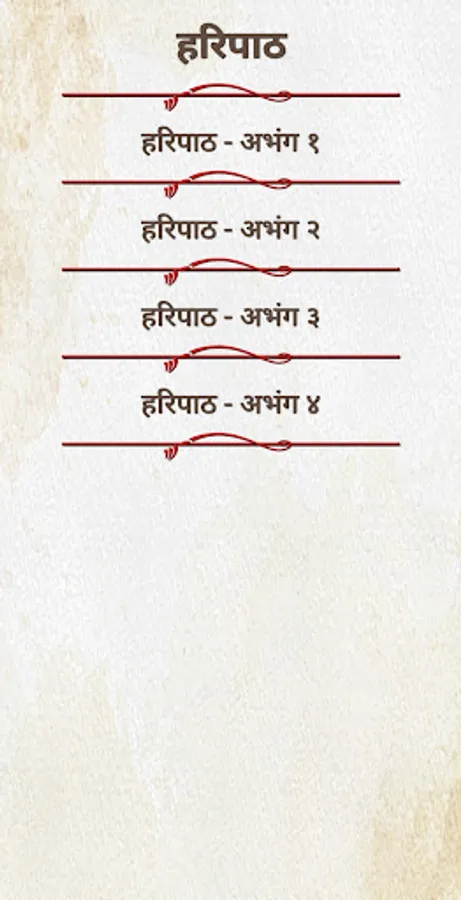 हरिपाठ
हरिपाठ - अभंग १
हरिपाठ - अभंग २
हरिपाठ - अभंग ३
हरिपाठ - अभंग ४